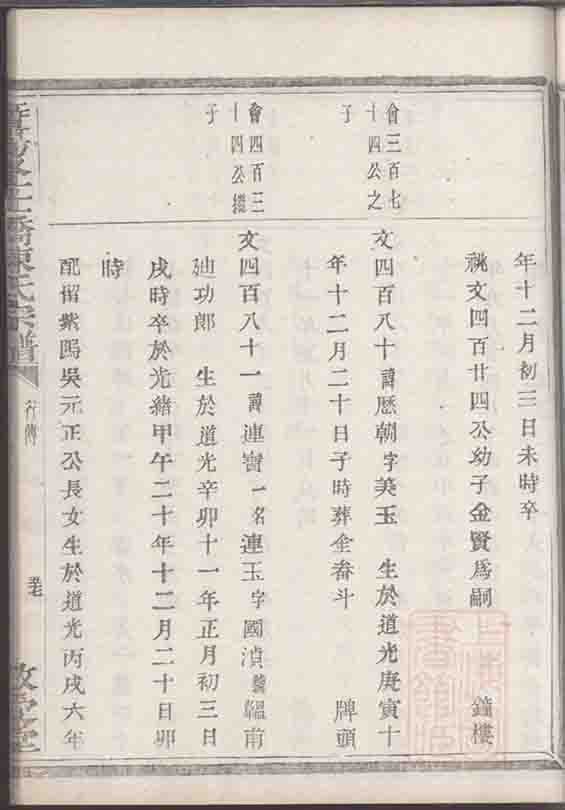 年十二月初三日未時卒
祧文四百廿四公幼子金賢爲嗣 鐘樓
會三百七十四公之子
文四百八十諱歷朝字美玉 生於道光庚寅十
年十二月二十日子時葬金畚斗 牌頭
會四百三十四公繼子
文四百八十一諱連甯一名連玉字國湞號韞甫
廸功郎 生於道光辛卯十一年正月初三日
戌時卒於光緒甲午二十年十二月二十日卯
時
配留紫隝吳元正公長女生於道光丙戌六年
橋陳氏宗譜
行傳